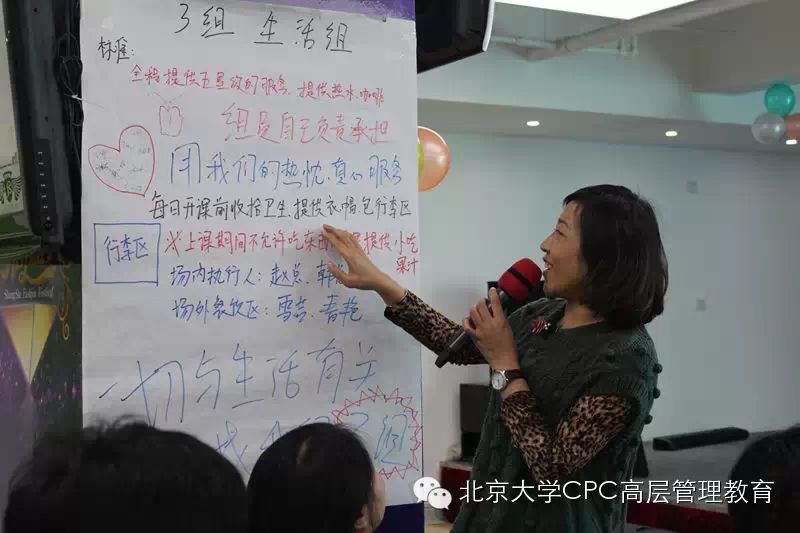 3组 生活组
标准:
全程提供五星级的服务、提供热水、咖啡
组员自主负责承担
用我们的热忱,真心服务
每日开课前收拾卫生、提供衣、帽、包行李区
行李区
上课期间不允许吃东西 提供小吃
果汁
场内执行人:赵总、韩
场外餐饮区:雪吉、春艳
一切与生活有关
组
北京大学CPC高层管理教育